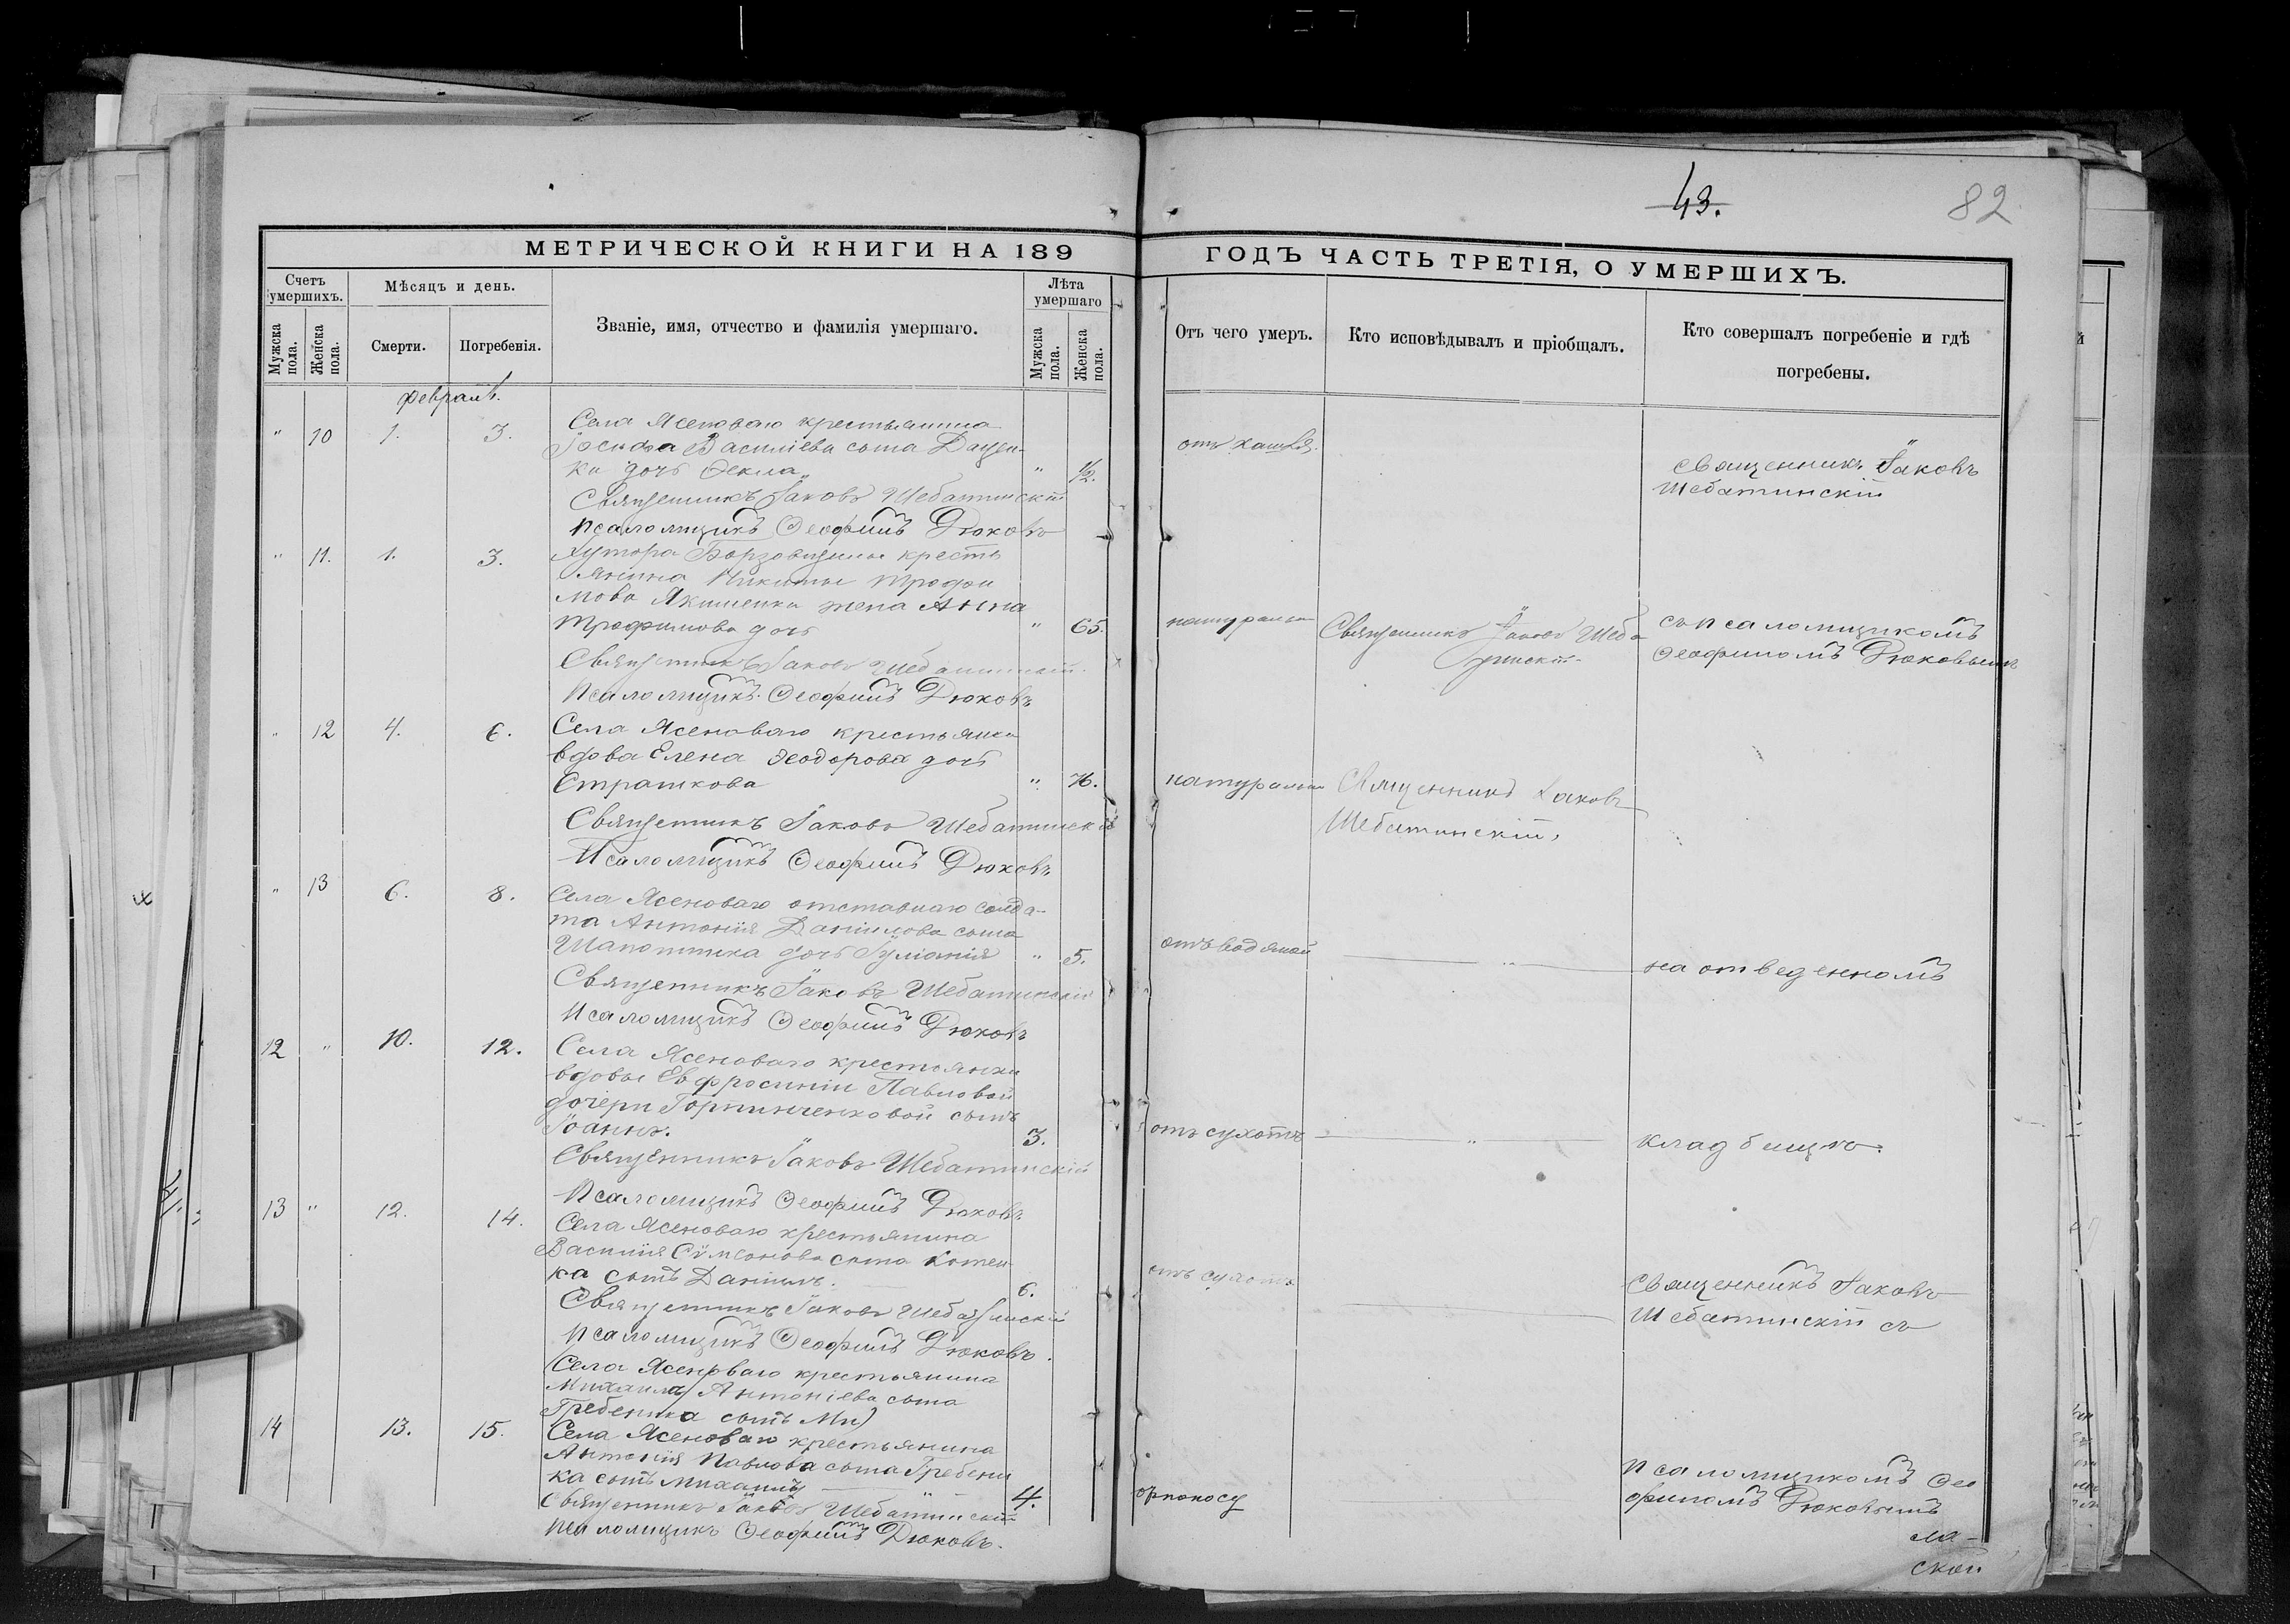 43.
82
МЕТРИЧЕСКОЙ КНИГИ НА 189
ГОДЪ ЧАСТЬ ТРЕТІЯ, О УМЕРШИХЪ.
Счетъ умершихъ.
Мѣсяцъ и день.
Званіе, имя, отчество и фамилія умершаго.
Лѣта умершаго
Мужска пола.
Женска пола.
Смерти.
Погребенія.
Мужска пола.
Женска пола.
Отъ чего умеръ.
Кто исповѣдывалъ и пріобщалъ.
Кто совершалъ погребеніе и гдѣ
погребены.
" 10 1. 3. Села Ясеноваго крестьянина
Іосифа Василіева сына Дацен-
ка дочь Фекла " 1/2.
Священникъ Іаковъ Шебатинскій
Псаломщикъ Феофилъ Дюковъ
" 11. 1. 3. Хутора Борзовщины кресть
янина Никиты Трофи
мова Якименка жена Анна
Трофимова дочь " 65.
Священникъ Іаковъ Шебатинскій
Псаломщикъ Феофилъ Дюковъ
" 12 4. 6. Села Ясеноваго крестьянка
вдова Елена Феодорова дочь
Страшкова " 76.
Священникъ Іаковъ Шебатинскій
Псаломщикъ Феофилъ Дюковъ
" 13 6. 8. Села Ясеноваго отставнаго солда-
та Антонія Даніилова сына
Шапошника дочь Іуліанія " 5.
Священникъ Іаковъ Шебатинскій
Псаломщикъ Феофилъ Дюковъ
12 " 10. 12. Села Ясеноваго крестьянки
вдовы Евфросиніи Павловой
дочери Горпинченковой сынъ
Іоаннъ. 3.
Священникъ Іаковъ Шебатинскій
Псаломщикъ Феофилъ Дюковъ
13 " 12. 14. Села Ясеноваго крестьянина
Василія Сѵмеонова сына Котен-
ка сынъ Даніилъ. 6.
Священникъ Іаковъ Шебатинскій
Псаломщикъ Феофилъ Дюковъ.
(Села Ясеноваго крестьянина
Михаила Антоніева сына
Гребеника сынъ Ми)
14 13. 15. Села Ясеноваго крестьянина
Антонія Павлова сына Гребени
ка сынъ Михаилъ 4.
Священникъ Іаковъ Шебатинскій
Псаломщикъ Феофилъ Дюковъ.
отъ кашля.
священникъ Іаковъ
Шебатинскій
натурально
Священникъ Іаковъ Шеба
тинскій
съ псаломщикомъ
Феофиломъ Дюковымъ
натурально
Священникъ Іаковъ
Шебатинскій
отъ водяной
"
на отведенномъ
отъ сухотъ
"
кладбищѣ.
отъ сухотъ
священникъ Іаковъ
Шебатинскій съ
псаломщикомъ Фео
филомъ Дюковымъ
ской